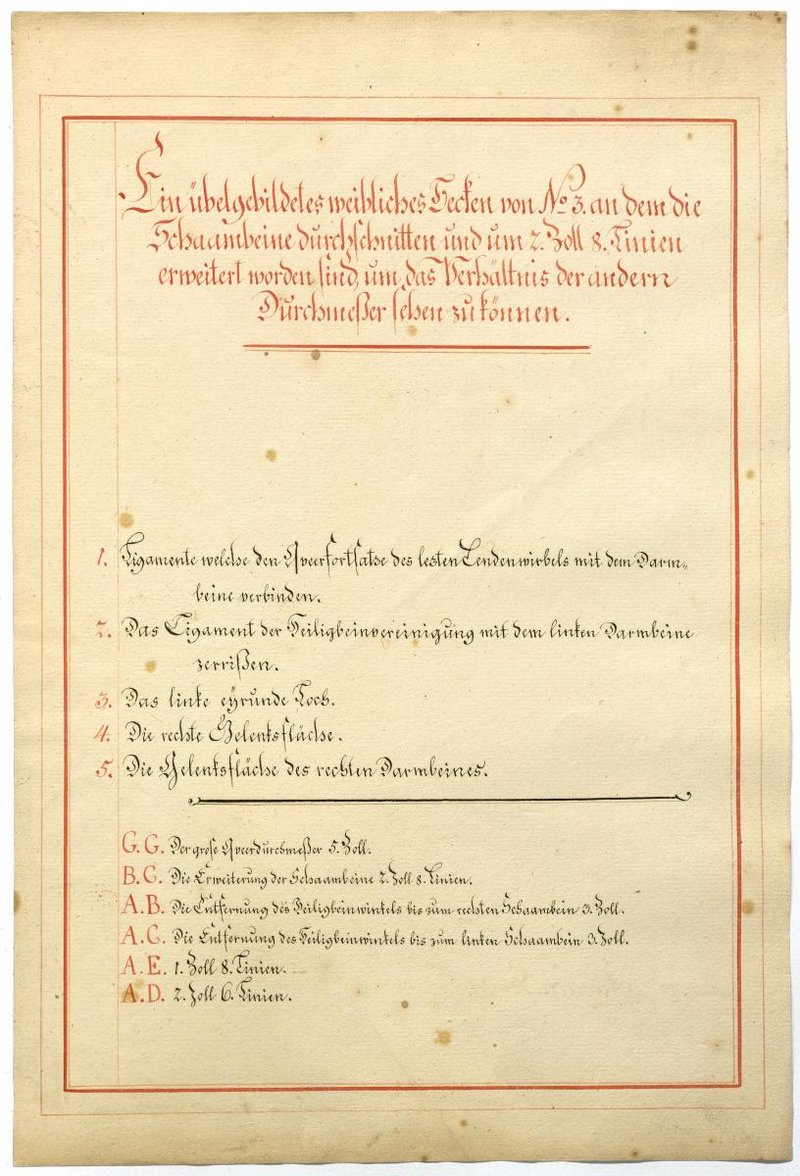 Ein übelgebildetes weibliches Becken von No 3. an dem die
Schaambeine durchschnitten und um 2. Zoll 8. Linien
erweitert worden sind, um das Verhältnis der andern
Durchmeßer sehen zu können.
1. Ligamente welche den Qveerfortsatse des lesten Lendenwirbels mit dem Darm-
beine verbinden.
2. Das Ligament der Heiligbeinvereinigung mit dem linken Darmbeine
zerrißen.
3. Das linke eÿrunde Loch.
4. Die rechte Gelenksfläche.
5. Die Gelenksfläche des rechten Darmbeines.
G. G. Der grose Qveerdurchmeßer 5. Zoll.
B. C. Die Erweiterung der Schaambeine 2. Zoll 8. Linien.
A. B. Die Entfernung des Heiligbeinwinkels bis zum rechten Schaambein 3. Zoll.
A. C. Die Entfernung des Heiligbeinwinkels bis zum linken Schaambein 3. Zoll.
A. E. 1. Zoll 8. Linien.
A. D. 2. Zoll 6. Linien.